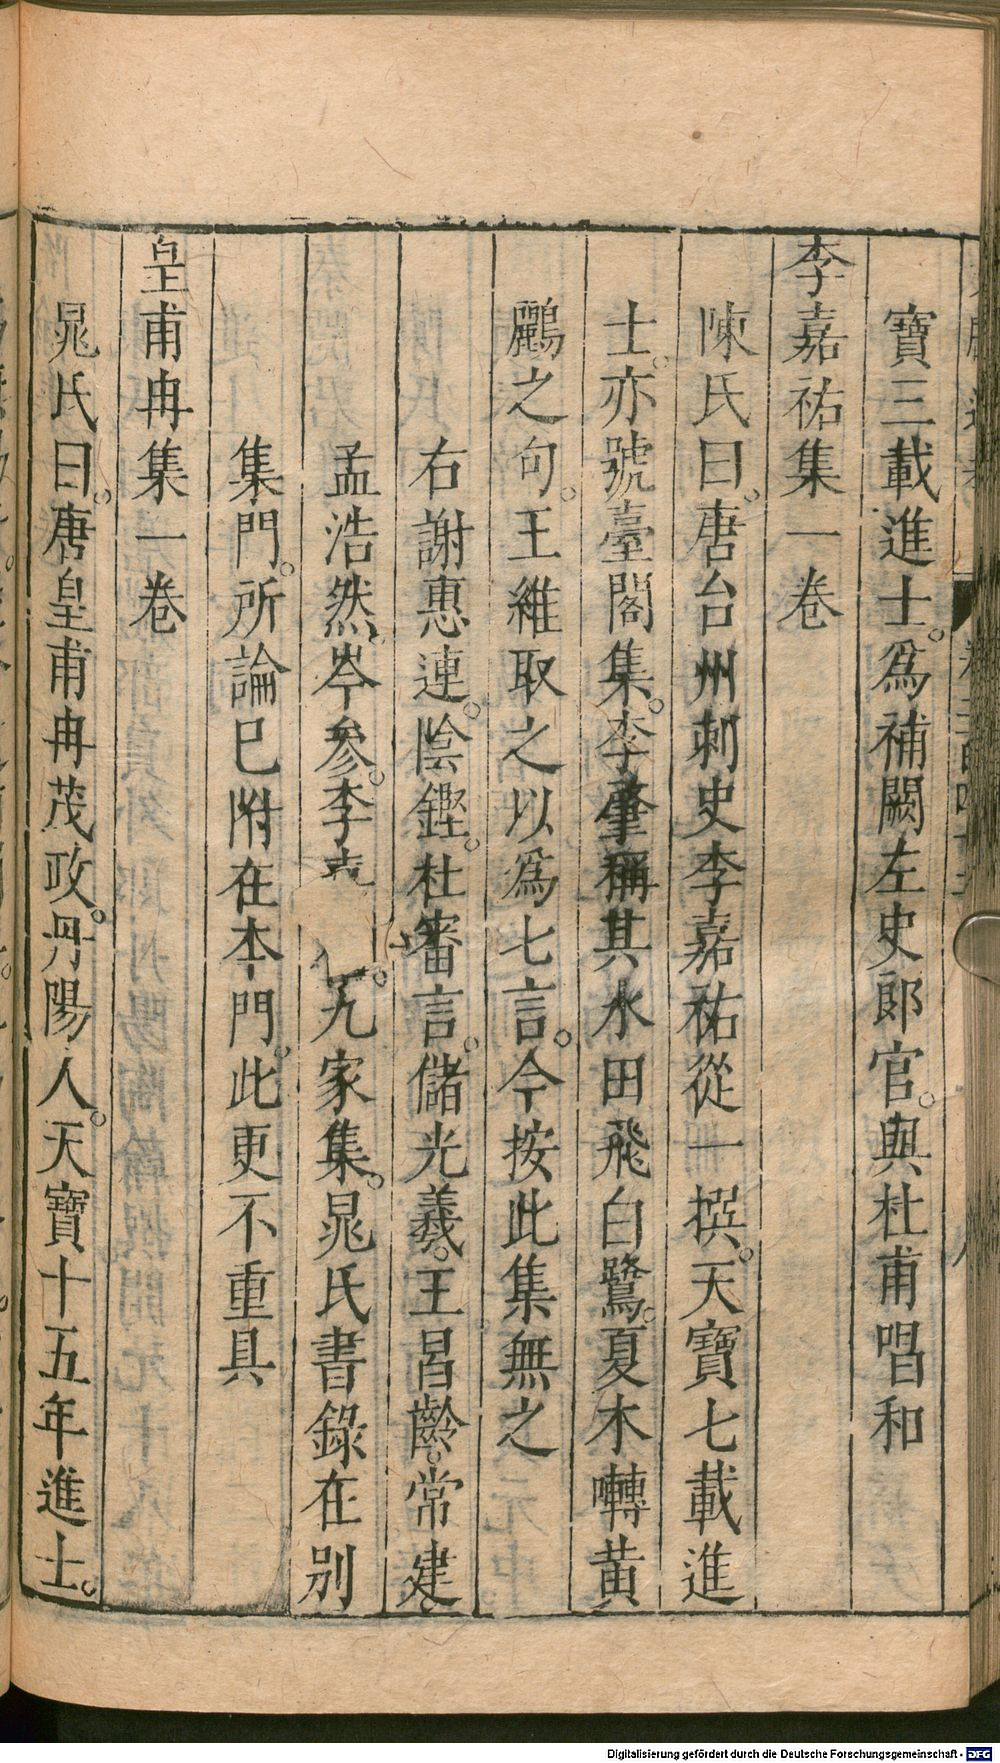 寶三載進士。爲補闕左史郎官。與杜甫唱和
李嘉祐集一卷
陳氏曰。唐台州刺史李嘉祐從一撰。天寶七載進
士。亦號臺閣集。李肇稱其水田飛白鷺。夏木囀黃
鸝之句。王維取之以爲七言。今按此集無之
右謝惠連。陰鏗。杜審言。儲光羲。王昌齡。常建。
孟浩然。岑參。李 九家集。晁氏書錄在别
集門。所論已附在本門。此更不重具
皇甫冉集一卷
晁氏曰。唐皇甫冉茂政。丹陽人。天寶十五年進士。
Digitalisierung gefördert durch die Deutsche Forschungsgemeinschaft - DFG